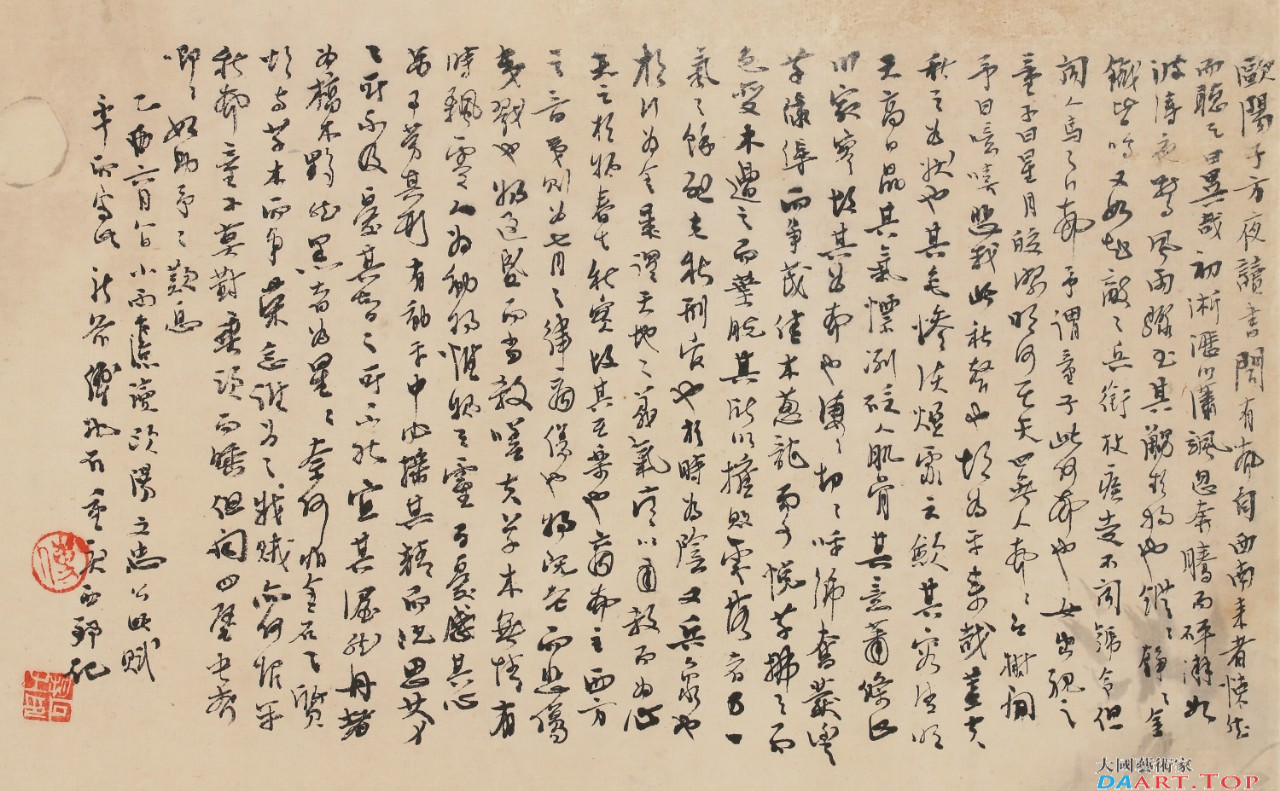 歐陽子方夜讀書聞有聲自西南來者悚然
而聽之曰異哉初淅瀝以瀟颯忽奔騰而砰湃如
波濤夜驚風雨驟至其觸於物也鏦〻錚〻金
鐵皆鳴又如赴敵之兵銜枚疾走不聞號令但
聞人馬之行聲予謂童子此何聲也女出視之
童子曰星月皎潔明河在天四無人聲〻在樹間
予曰噫嘻悲哉此秋聲也胡為乎來哉蓋夫
秋之為狀也其色慘淡煙霏雲歛其容清明
天高日晶其氣慄冽砭人肌骨其意蕭條山
川寂寥故其為聲也淒〻切〻呼號奮發豐
草綠縟而爭茂佳木蔥蘢而可悅草拂之而
色變木遭之而葉脫其所以摧敗零落者乃一
氣之餘烈夫秋刑官也於時為陰又兵象也
於行為金是謂天地之義氣常以肅殺而為心
天之於物春生秋實故其在樂也商聲主西方
之音夷則為七月之律商傷也物既老而悲傷
夷戮也物過盛而當殺嗟夫草木無情有
時飄零人為動物惟物之靈百憂感其心
萬事勞其形有動乎中必搖其精而況思其力
之所不及憂其智之所不能宜其渥然丹者
為槁木黟然黑者為星〻奈何非金石之質
欲與草木而爭榮念誰為之戕賊亦何恨乎
秋聲童子莫對垂頭而睡但聞四壁蟲聲
唧〻如助予之歎息
乙酉六月八日小雨乍涼讀歐陽文忠公此賦
而寫此記
大國藝術家
DAART.TOP